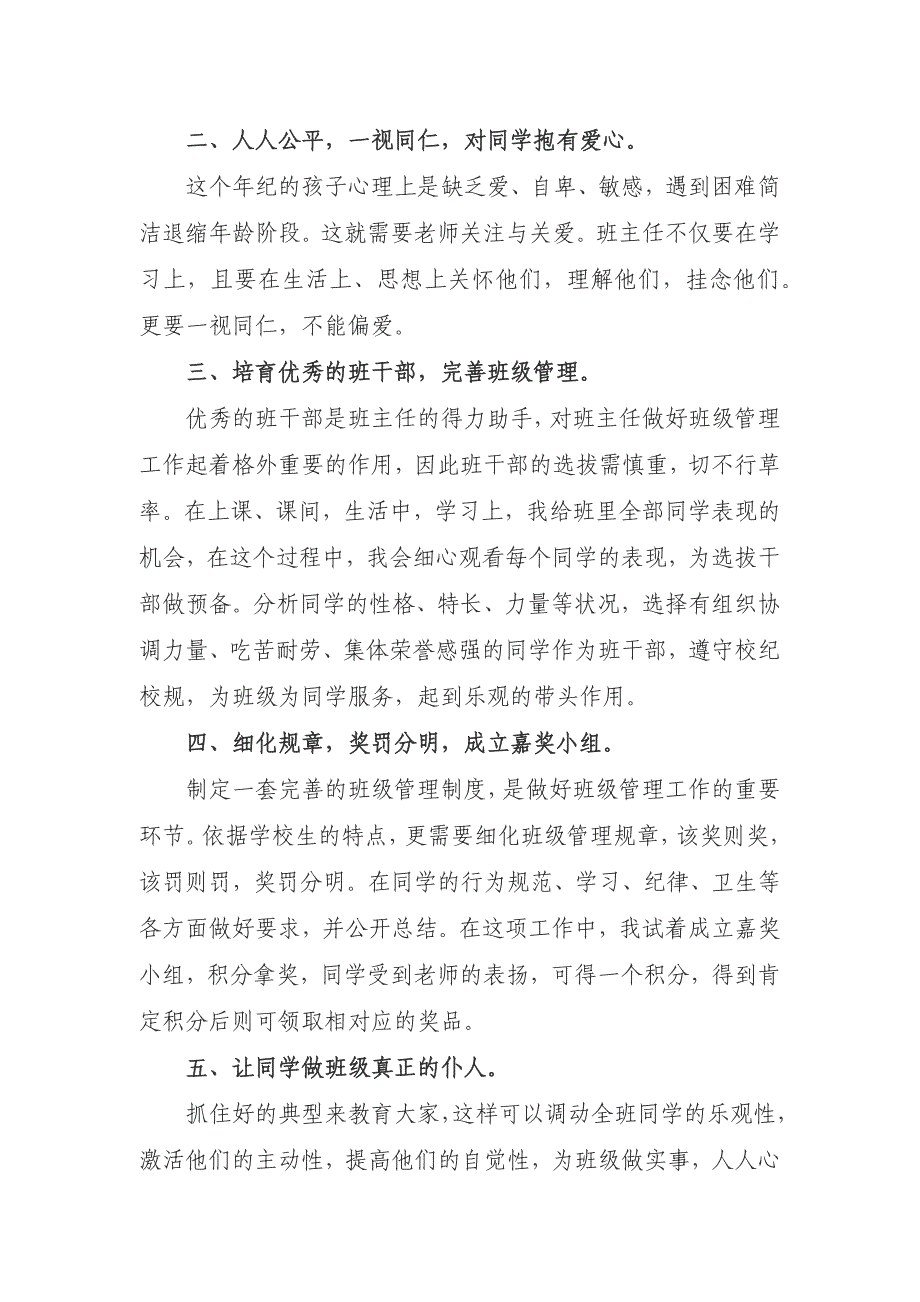 二、人人公平，一视同仁，对同学抱有爱心。
这个年纪的孩子心理上是缺乏爱、自卑、敏感，遇到困难简
洁退缩年龄阶段。这就需要老师关注与关爱。班主任不仅要在学
习上，且要在生活上、思想上关怀他们，理解他们，挂念他们。
更要一视同仁，不能偏爱。
三、培育优秀的班干部，完善班级管理。
优秀的班干部是班主任的得力助手，对班主任做好班级管理
工作起着格外重要的作用，因此班干部的选拔需慎重，切不行草
率。在上课、课间，生活中，学习上，我给班里全部同学表现的
机会，在这个过程中，我会细心观看每个同学的表现，为选拔干
部做预备。分析同学的性格、特长、力量等状况，选择有组织协
调力量、吃苦耐劳、集体荣誉感强的同学作为班干部，遵守校纪
校规，为班级为同学服务，起到乐观的带头作用。
四、细化规章，奖罚分明，成立嘉奖小组。
制定一套完善的班级管理制度，是做好班级管理工作的重要
环节。依据学校生的特点，更需要细化班级管理规章，该奖则奖，
该罚则罚，奖罚分明。在同学的行为规范、学习、纪律、卫生等
各方面做好要求，并公开总结。在这项工作中，我试着成立嘉奖
小组，积分拿奖，同学受到老师的表扬，可得一个积分，得到肯
定积分后则可领取相对应的奖品。
五、让同学做班级真正的仆人。
抓住好的典型来教育大家，这样可以调动全班同学的乐观性，
激活他们的主动性，提高他们的自觉性，为班级做实事，人人心